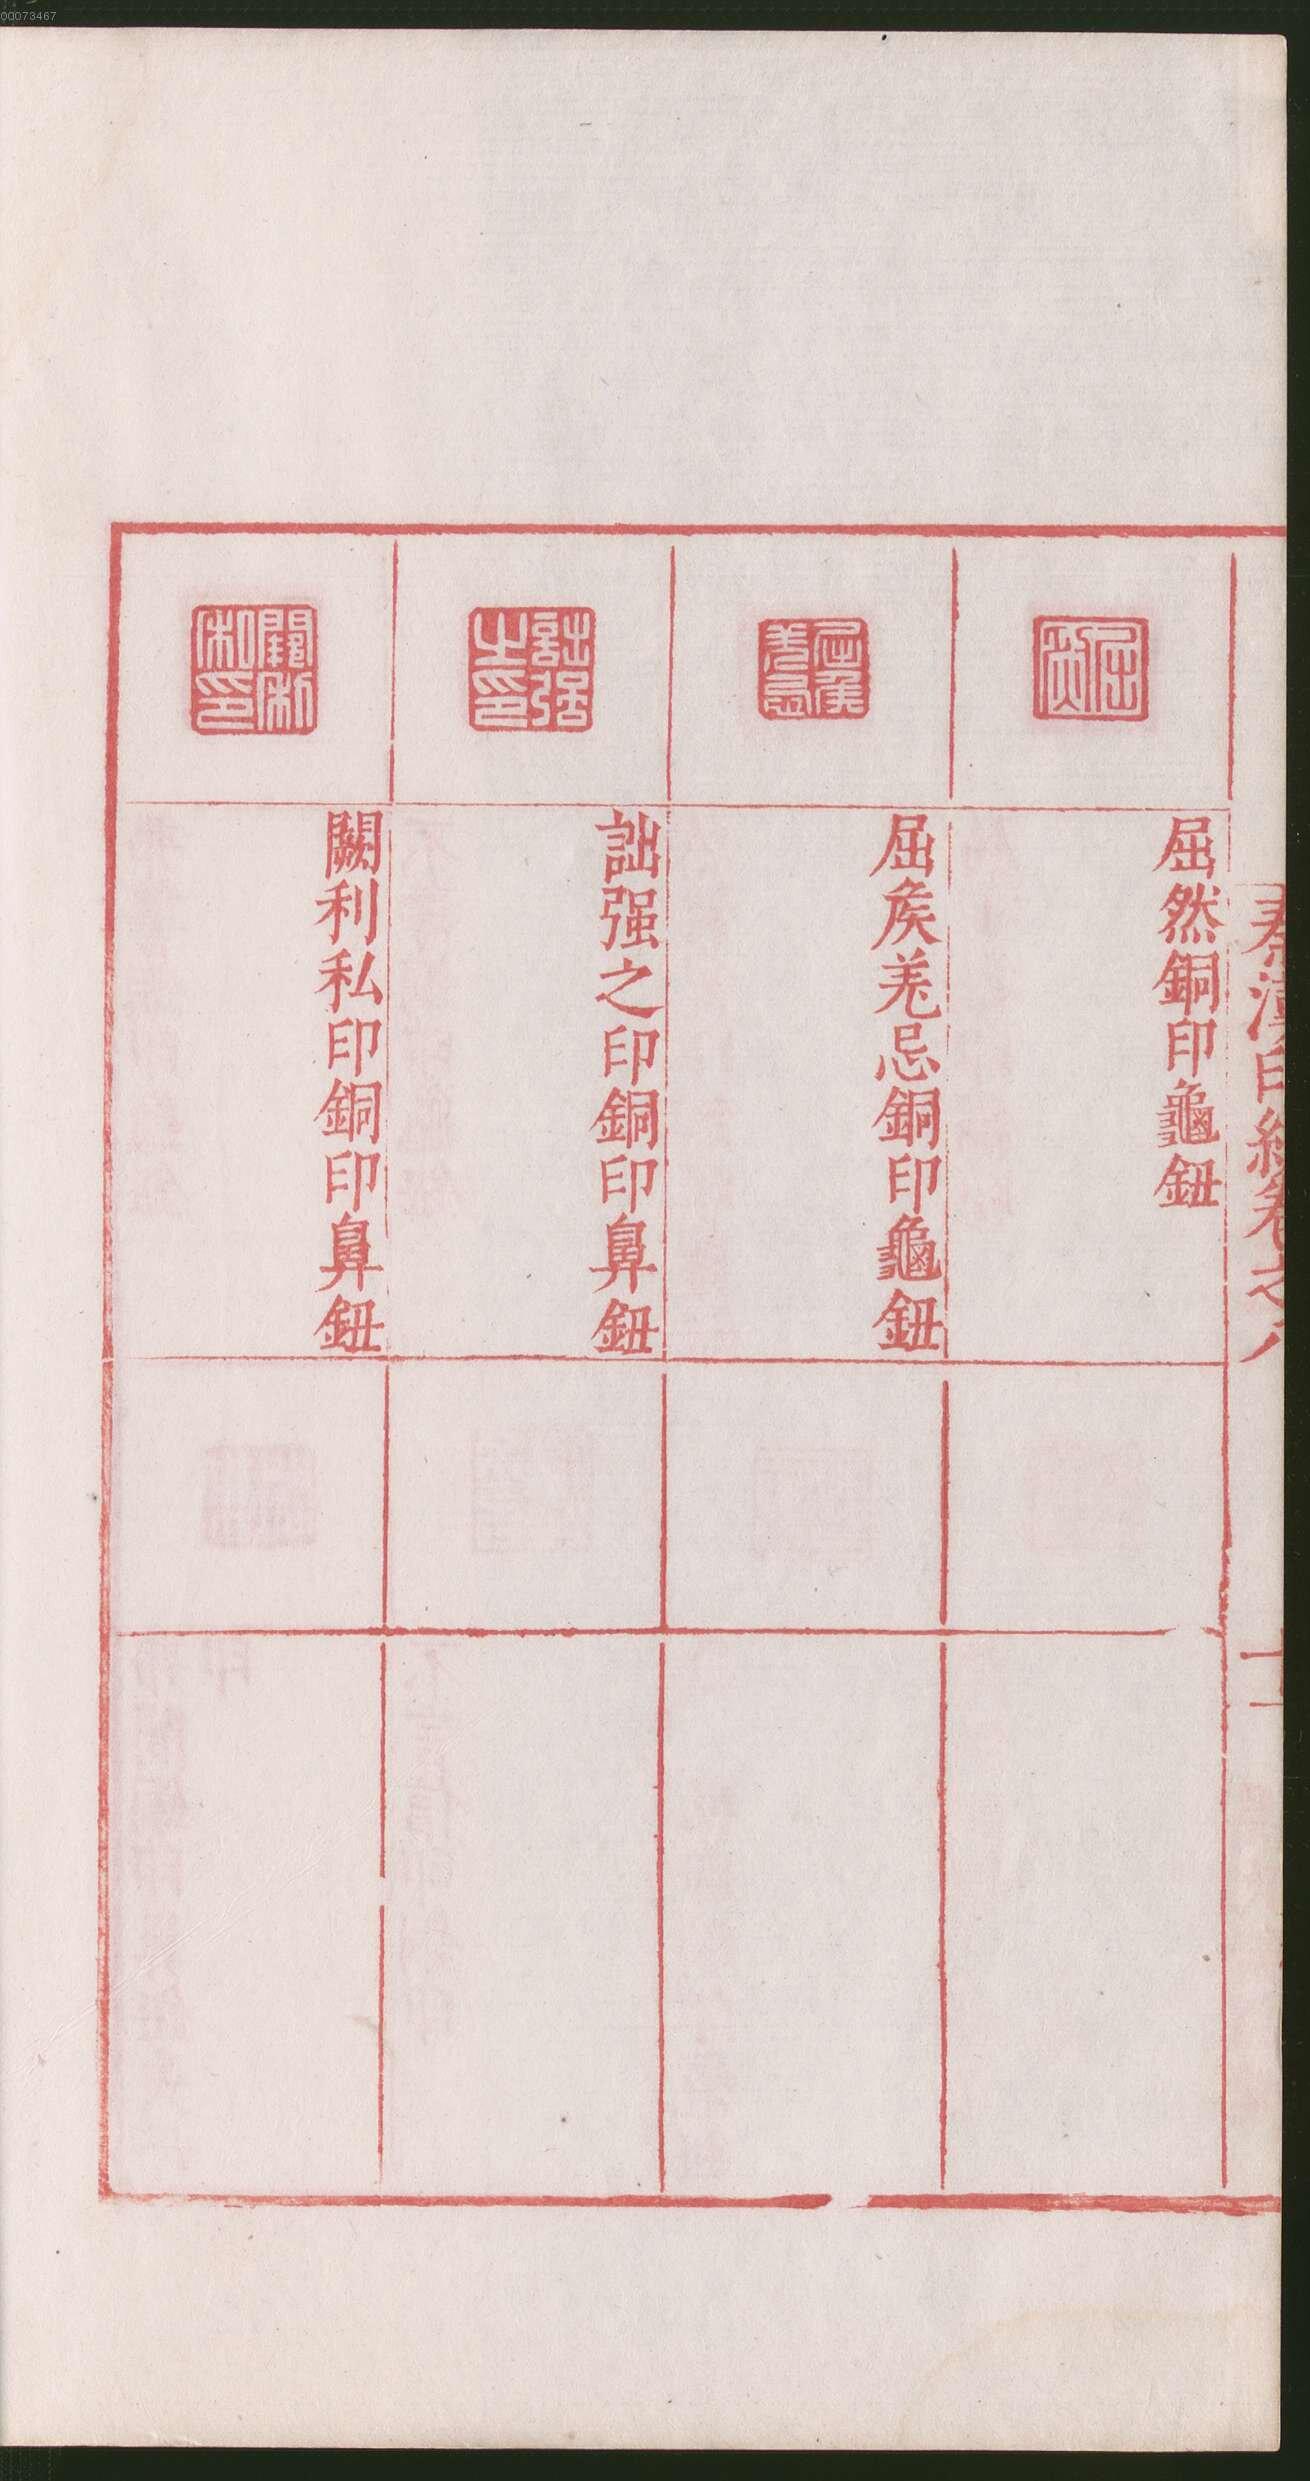 00073467
秦漢印統卷之八
十一
屈然
屈然銅印龜鈕
屈矦羌忌
屈矦羌忌銅印龜鈕
詘强之印
詘强之印銅印鼻鈕
闕利私印
闕利私印銅印鼻鈕